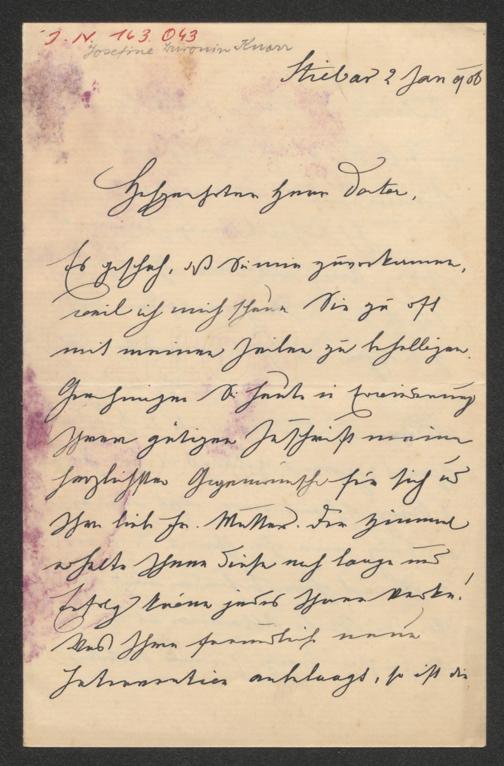 J. N. 163.043
Josefine Baronin Knorr
Stiebar 2 Jan 906
Hochgeehrter Herr Doctor,
Es geschah, daß Sie mir zuvorkamen,
weil ich mich scheue Sie zu oft
mit meinen Zeilen zu behelligen.
Genehmigen Sie heute in Erwiderung
Ihrer gütigen Zuschrift meine
herzlichsten Gegenwünsche für sich u
Ihre liebe Fr. Mutter. Der Himmel
erhalte Ihnen Diese noch lange und
Erfolg kröne jedes Ihrer Werke!
Was Ihre freundlich neue
Intervention anbelangt, so ist die